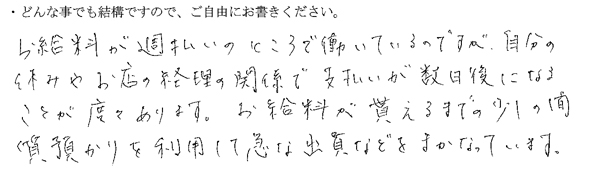 ・どんな事でも結構ですので、ご自由にお書きください。
お給料が週払いのところで働いているのですが、自分の
休みやお店の経理の関係で支払いが数日後になる
ことが度々あります。お給料が貰えるまでの少しの間
質預かりを利用して急な出費などをまかなっています。